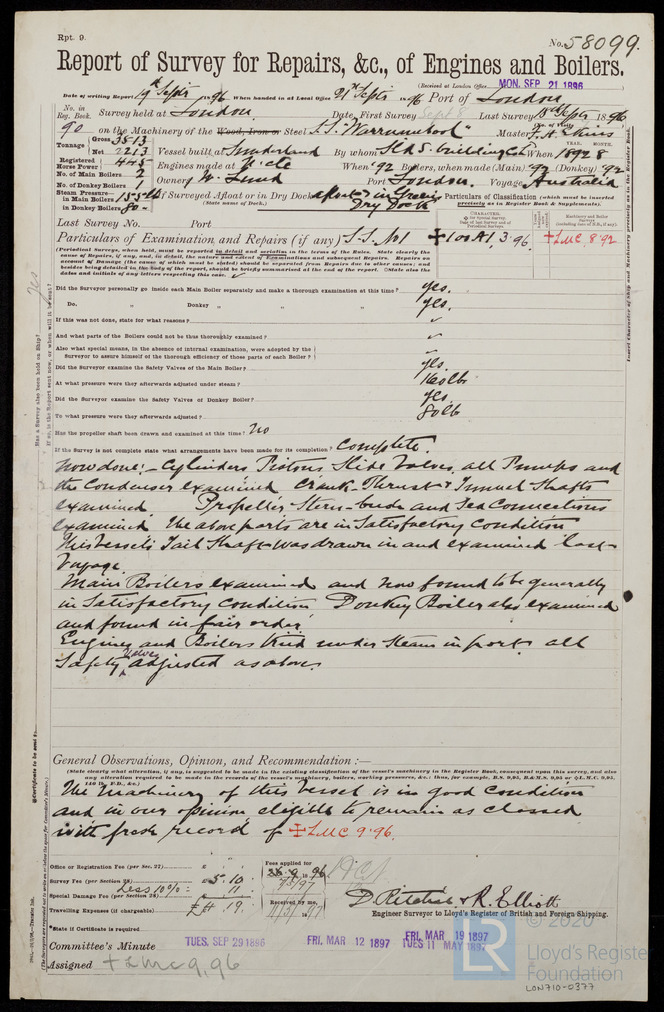 Rpt. 9.
No. 58099.
Report of Survey for Repairs, &c., of Engines and Boilers.
(Received at London Office MON. SEP 21 1896
Date of writing Report 19th Septr 1896 When handed in at Local Office 21st Septr 1896 Port of London
No. in Reg. Book. Survey held at London Date, First Survey Sept 8 Last Survey 18th Septr 1896
90 on the Machinery of the Wood, Iron or Steel S.S. "Warrnambool" Master
Tonnage Gross 3513 Net 2213 Vessel built at Sunderland By whom When 1892 8
Registered Horse Power 445 Engines made at When '92 Boilers, when made (Main) '92 (Donkey) '92
No. of Main Boilers 2
No. of Donkey Boilers Owners W. Lund Port London. Voyage Australia
Steam Pressure in Main Boilers 155 lb If Surveyed Afloat or in Dry Dock afloat & in Green's Dry Dock
in Donkey Boilers 80 (State name of Dock.)
Particulars of Classification (which must be inserted precisely as in Register Book & Supplements).
Last Survey No. Port
Particulars of Examination, and Repairs (if any) S.S. No 1 ✠100A1 3.96. ✠LMC 8.92
(Periodical Surveys, when held, must be reported by detail and seriatim in the terms of the Rules. State clearly the
cause of Repairs, if any, and, in detail, the nature and extent of Examinations and subsequent Repairs. Repairs on
account of Damage (the cause of which must be stated) should be separated from Repairs due to other causes; and
besides being detailed in the body of the report, should be briefly summarized at the end of the report. State also the
dates and initials of any letters respecting this case.
Did the Surveyor personally go inside each Main Boiler separately and make a thorough examination at this time? yes.
Do. „ Donkey „ „ „ yes.
If this was not done, state for what reasons? ✓
And what parts of the Boilers could not be thus thoroughly examined? ✓
Also what special means, in the absence of internal examination, were adopted by the
Surveyor to assure himself of the thorough efficiency of those parts of each Boiler? ✓
Did the Surveyor examine the Safety Valves of the Main Boiler? yes.
At what pressure were they afterwards adjusted under steam? 160 lb
Did the Surveyor examine the Safety Valves of Donkey Boiler? yes.
To what pressure were they afterwards adjusted? 80 lb
Has the propeller shaft been drawn and examined at this time? No
If the Survey is not complete state what arrangements have been made for its completion? Complete.
Now done:- Cylinders Pistons, Slide Valves, all Pumps and
the Condenser examined Crank-Thrust & Tunnel Shafts
examined. Propeller Stern-bush and Sea Connections
examined The above parts are in Satisfactory Condition
This vessel's Tail Shaft was drawn in and examined last
Voyage.
Main Boilers examined and now found to be generally
in Satisfactory Condition Donkey Boiler also examined
and found in fair order.
Engines and Boilers tried under Steam in port all
Safety Valves adjusted as above.
General Observations, Opinion, and Recommendation :—
(State clearly what alteration, if any, is suggested to be made in the existing classification of the vessel's machinery in the Register Book, consequent upon this survey, and also
any alteration required to be made in the records of the vessel's machinery, boilers, working pressures, &c.: thus, for example, B.S. 9,95, B.&M.S. 9,95 or ✠L.M.C. 9,95,
140 lb, F.D., &c.)
The Machinery of this Vessel is in good Condition
and in our opinion eligible to remain as classed
with fresh record of ✠LMC 9.96.
Office or Registration Fee (per Sec. 27) £
Survey Fee (per Section 28) £5.10
Less 10%: 11
Special Damage Fee (per Section 28)
Travelling Expenses (if chargeable) £4.19.
Fees applied for
Received by me,
D. Ritchie & R. Elliott
Engineer Surveyor to Lloyd's Register of British and Foreign Shipping.
*State if Certificate is required
Committee's Minute TUES. SEP 29 1896 FRI. MAR 12 1897 FRI. MAR 19 1897
TUES 11 MAY 1897
Assigned +LMC 9,96
© 2020
LR
Lloyd's Register
Foundation
LON710-0377